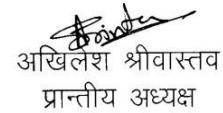 अखिलेश श्रीवास्तव
प्रान्तीय अध्यक्ष